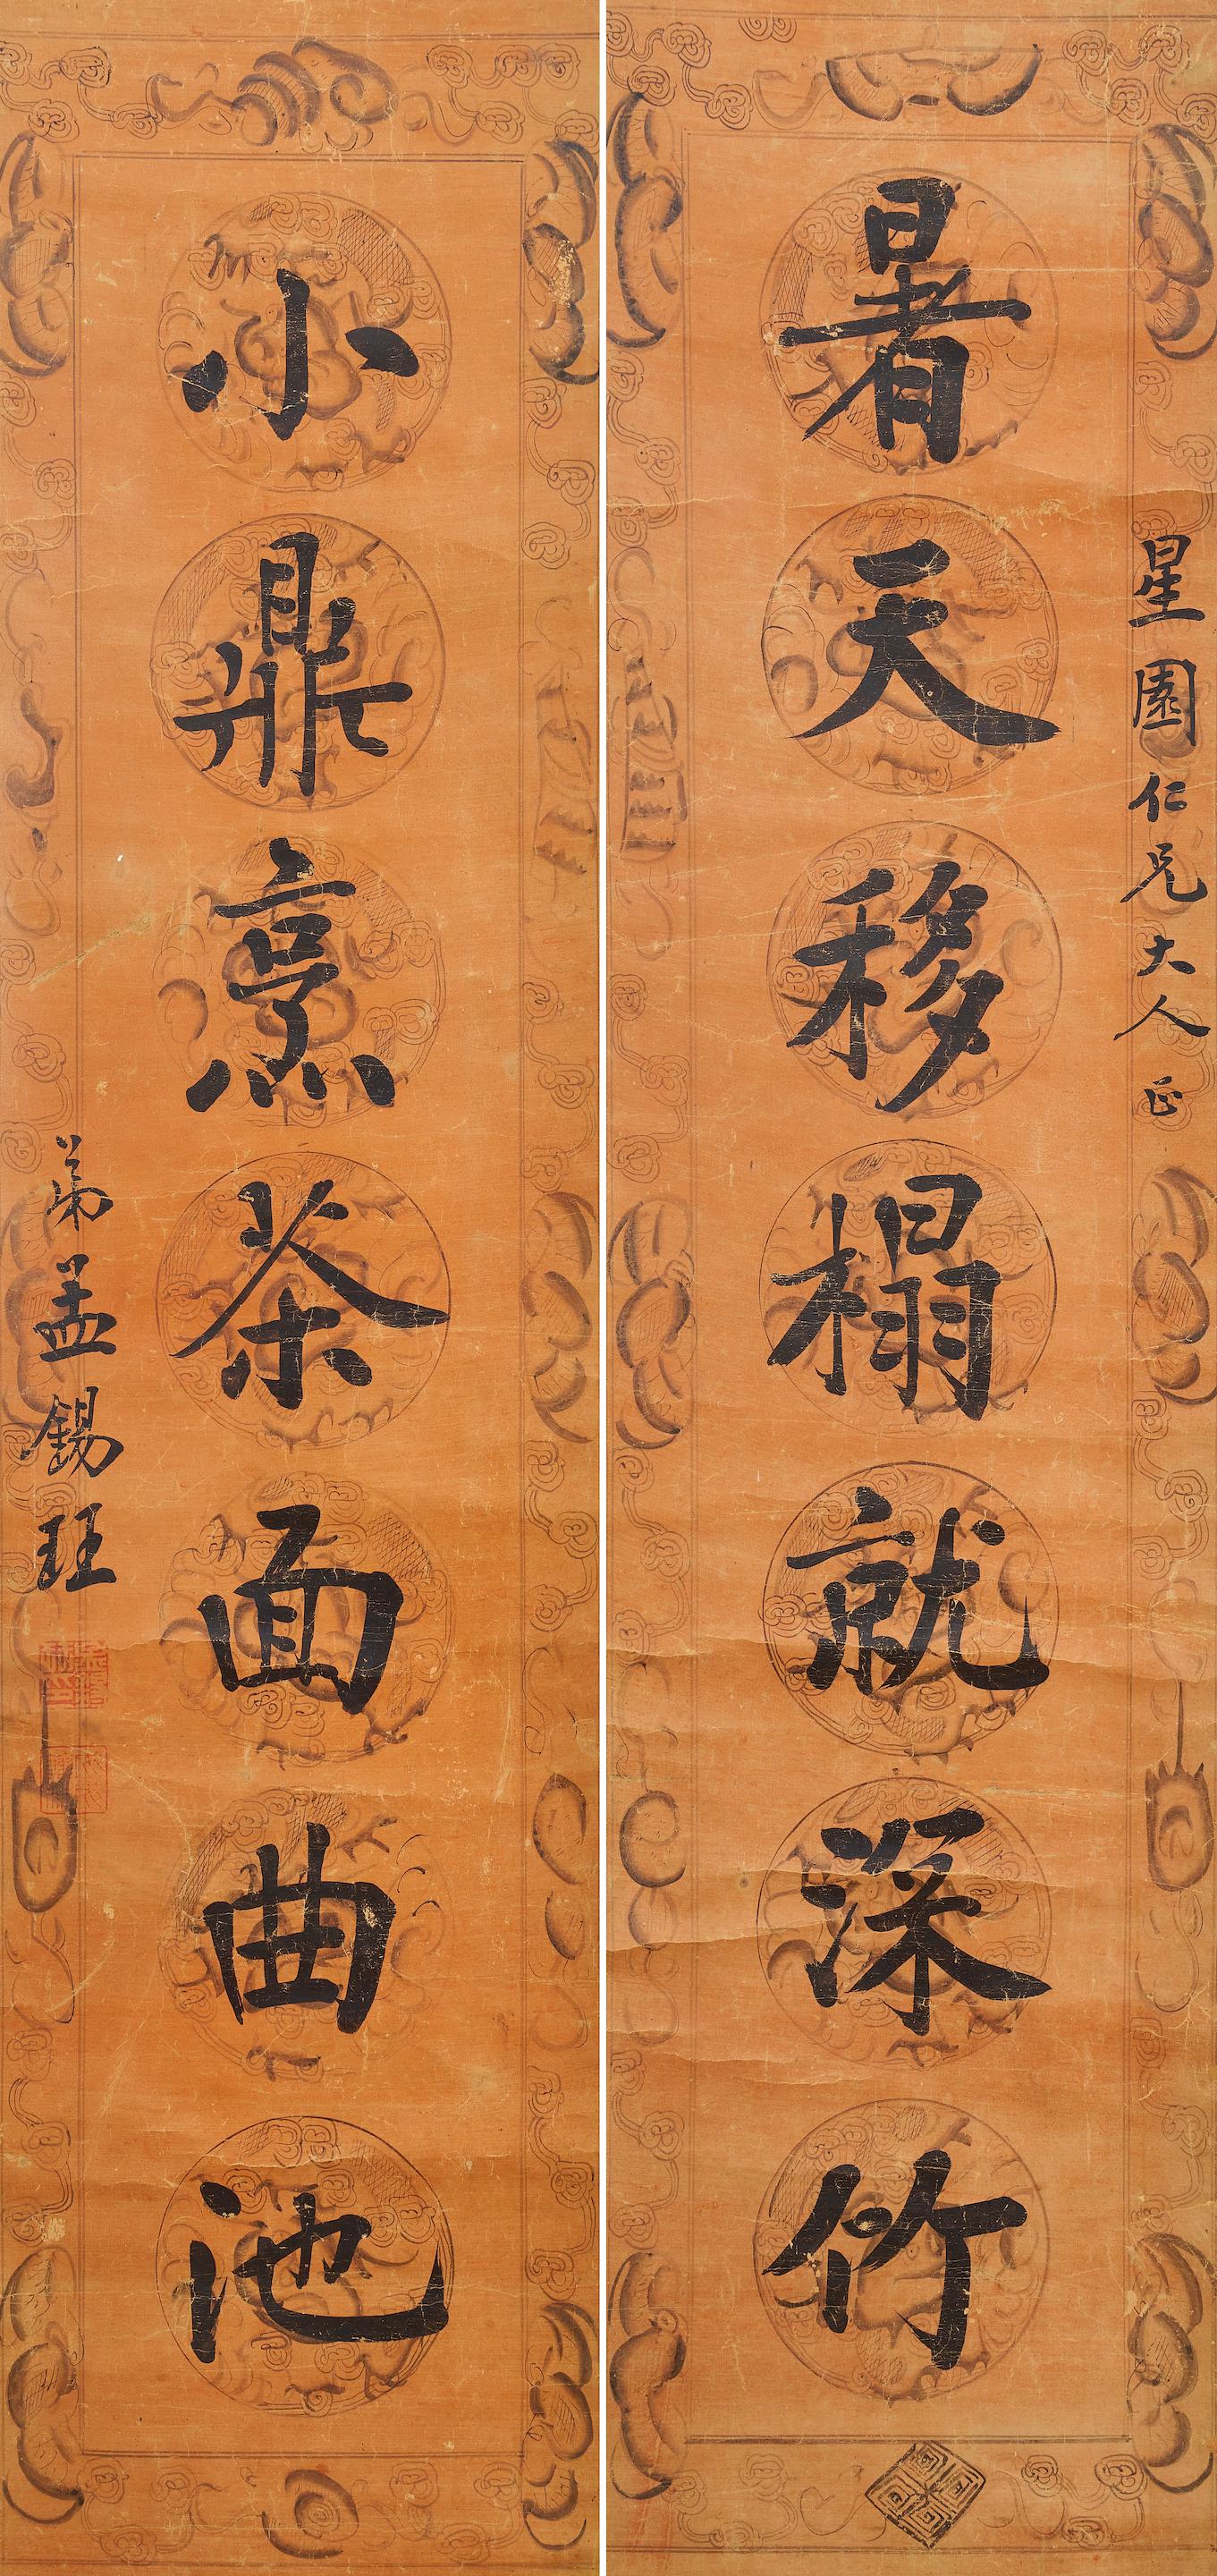 星園仁兄大人正
暑天移榻就深竹
小鼎烹茶面曲池
弟孟錫珏